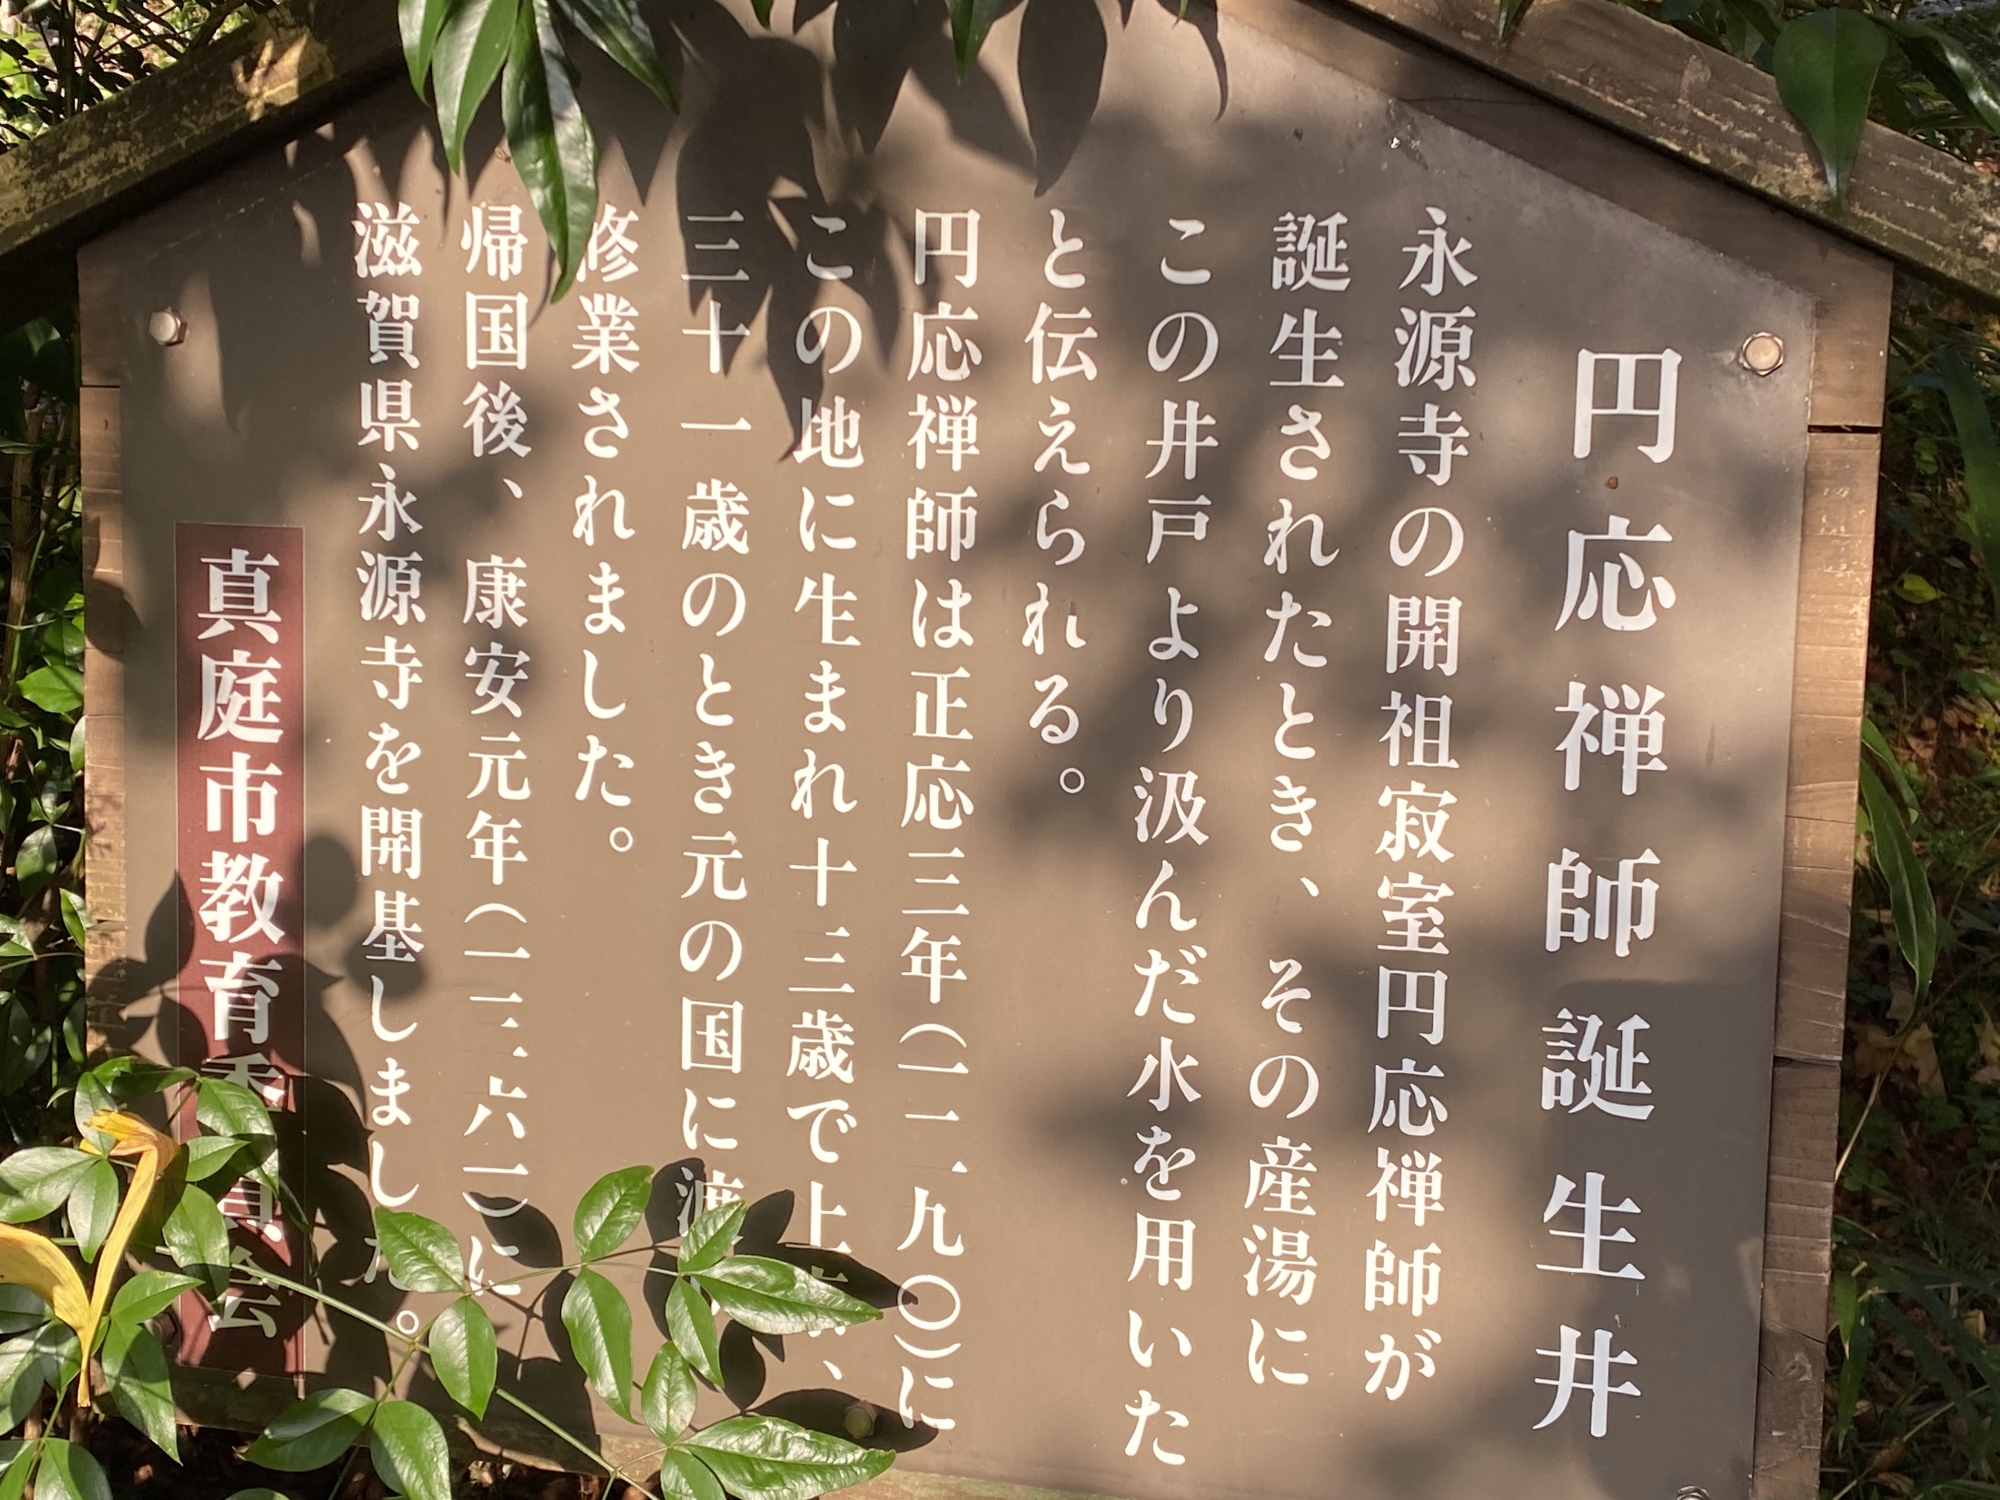 円応禅師誕生井
永源寺の開祖寂室円応禅師が
誕生されたとき、その産湯に
この井戸より汲んだ水を用いた
と伝えられる。
円応禅師は正応三年(一二九〇)に
この地に生まれ十三歳で上、
三十一歳のとき元の国に渡
修業されました。
帰国後、康安元年(一三六一)に
滋賀県永源寺を開基しました。
真庭市教育委員会